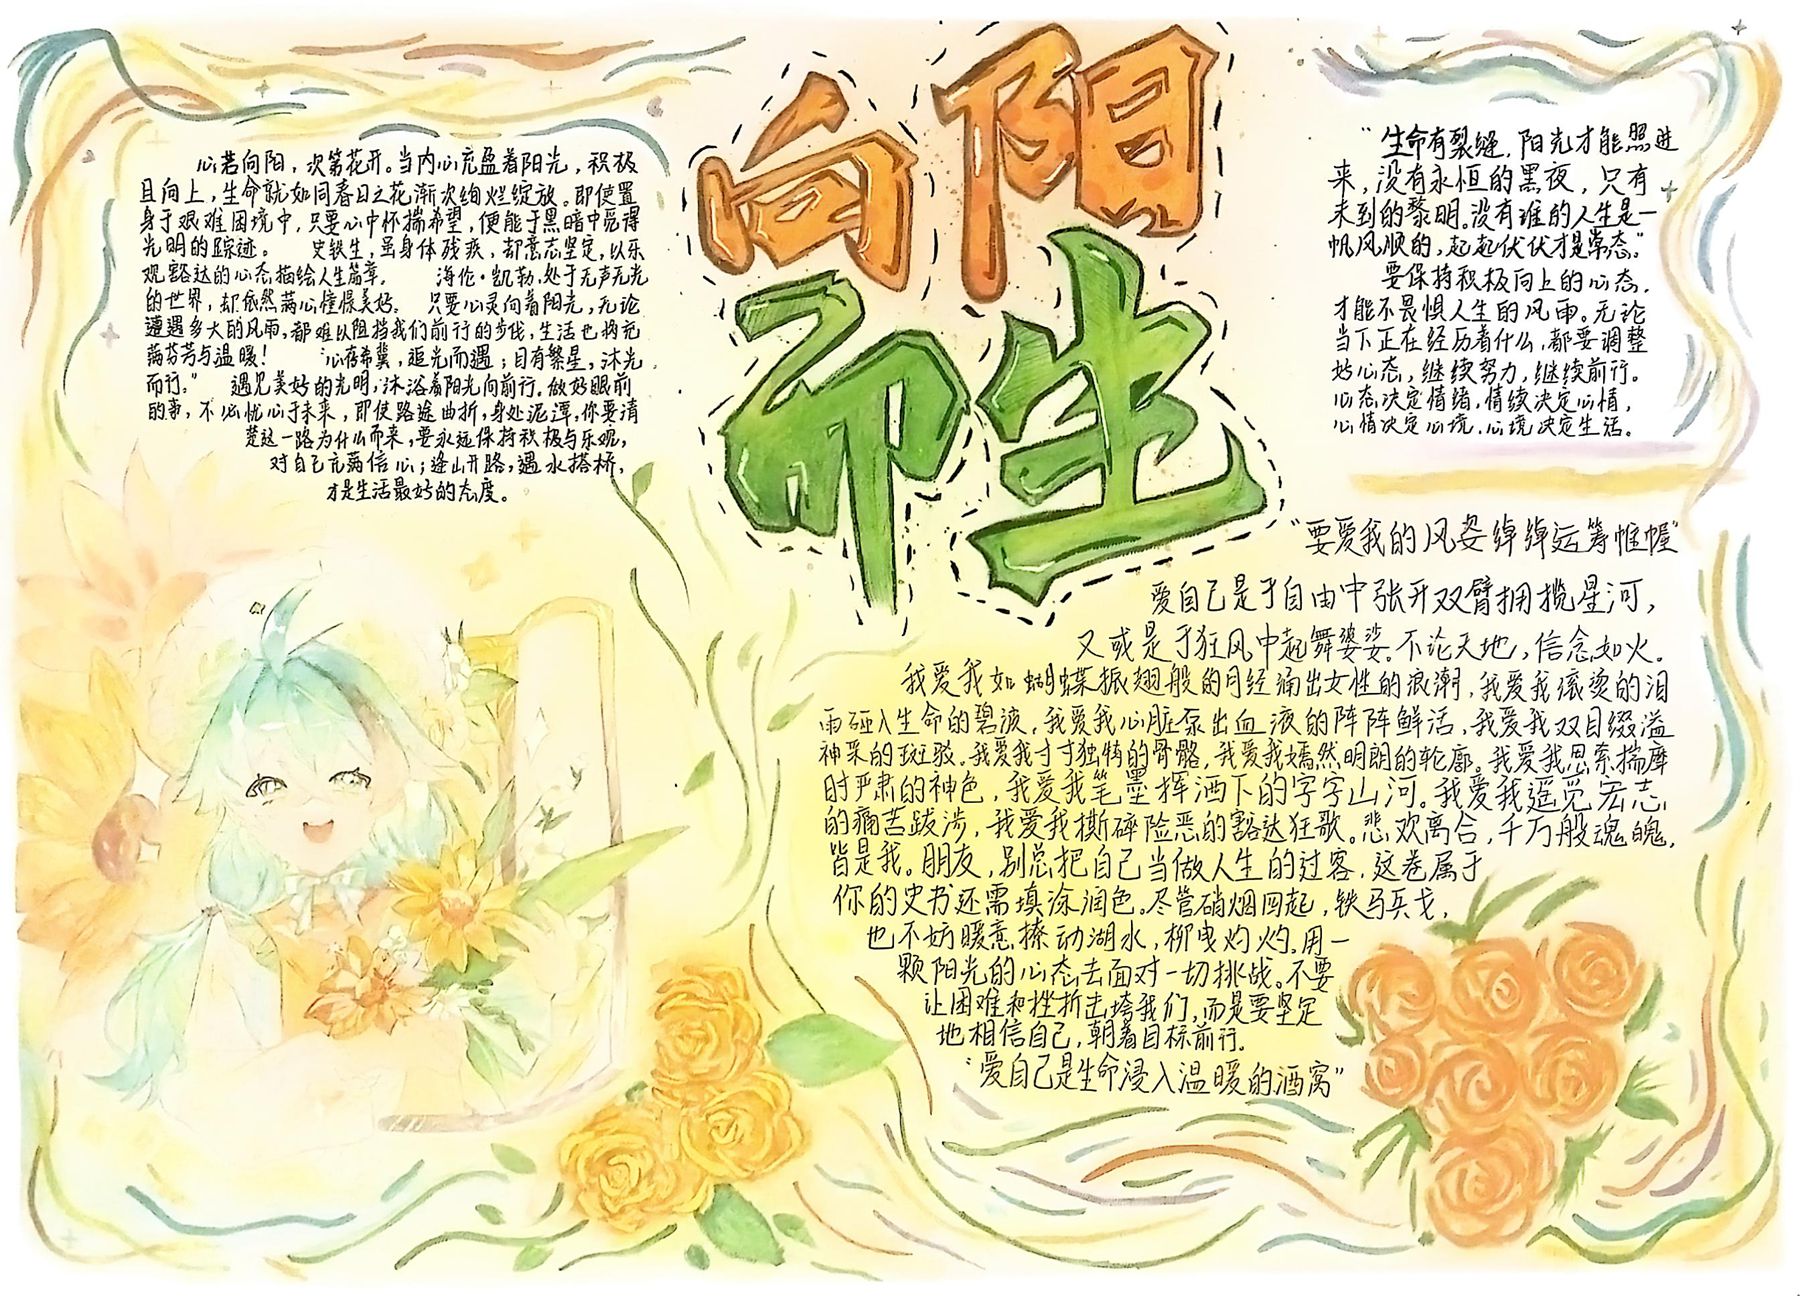 向阳
而生
心若向阳，次第花开。当内心充盈着阳光，积极
且向上，生命就如同春日之花渐次绚烂绽放。即使置
身于艰难困境中，只要心中怀揣希望，便能于黑暗中觅得
光明的踪迹。 史铁生，虽身体残疾，却意志坚定，以乐
观豁达的心态描绘人生篇章。 海伦·凯勒，处于无声无光
的世界，却依然满心憧憬美好。 只要心灵向着阳光，无论
遭遇多大的风雨，都难以阻挡我们前行的步伐，生活也将充
满芬芳与温暖！ 心存希冀，追光而遇；目有繁星，沐光
而行。” 遇见美好的光明，沐浴着阳光向前行。做好眼前
的事，不必忧心于未来，即使路途曲折，身处泥潭，你要清
楚这一路为什么而来，要永远保持积极与乐观，
对自己充满信心；逢山开路，遇水搭桥，
才是生活最好的态度。
“生命有裂缝，阳光才能照进
来，没有永恒的黑夜，只有
未到的黎明。没有谁的人生是一
帆风顺的，起起伏伏才是常态。”
要保持积极向上的心态，
才能不畏惧人生的风雨。无论
当下正在经历着什么，都要调整
好心态，继续努力，继续前行。
心态决定情绪，情续决定心情，
心情决定心境，心境决定生活。
“要爱我的风姿绰绰运筹帷幄”
爱自己是于自由中张开双臂拥揽星河，
又或是于狂风中起舞婆娑。不论天地，信念如火。
我爱我如蝴蝶振翅般的月经涌出女性的浪潮，我爱我滚烫的泪
雨砸入生命的碧波，我爱我心脏泵出血液的阵阵鲜活，我爱我双目缀溢
神采的斑驳。我爱我寸寸独特的骨骼，我爱我嫣然明朗的轮廓。我爱我思索揣摩
时严肃的神色，我爱我笔墨挥洒下的字字山河。我爱我遥觅宏志
的痛苦跋涉，我爱我撕碎险恶的豁达狂歌。悲欢离合，千万般魂魄，
皆是我。朋友，别总把自己当做人生的过客，这卷属于
你的史书还需填涂润色。尽管硝烟四起，铁马兵戈，
也不妨暖意撩动湖水，柳曳灼灼。用一
颗阳光的心态去面对一切挑战。不要
让困难和挫折击垮我们，而是要坚定
地相信自己，朝着目标前行。
“爱自己是生命浸入温暖的酒窝”